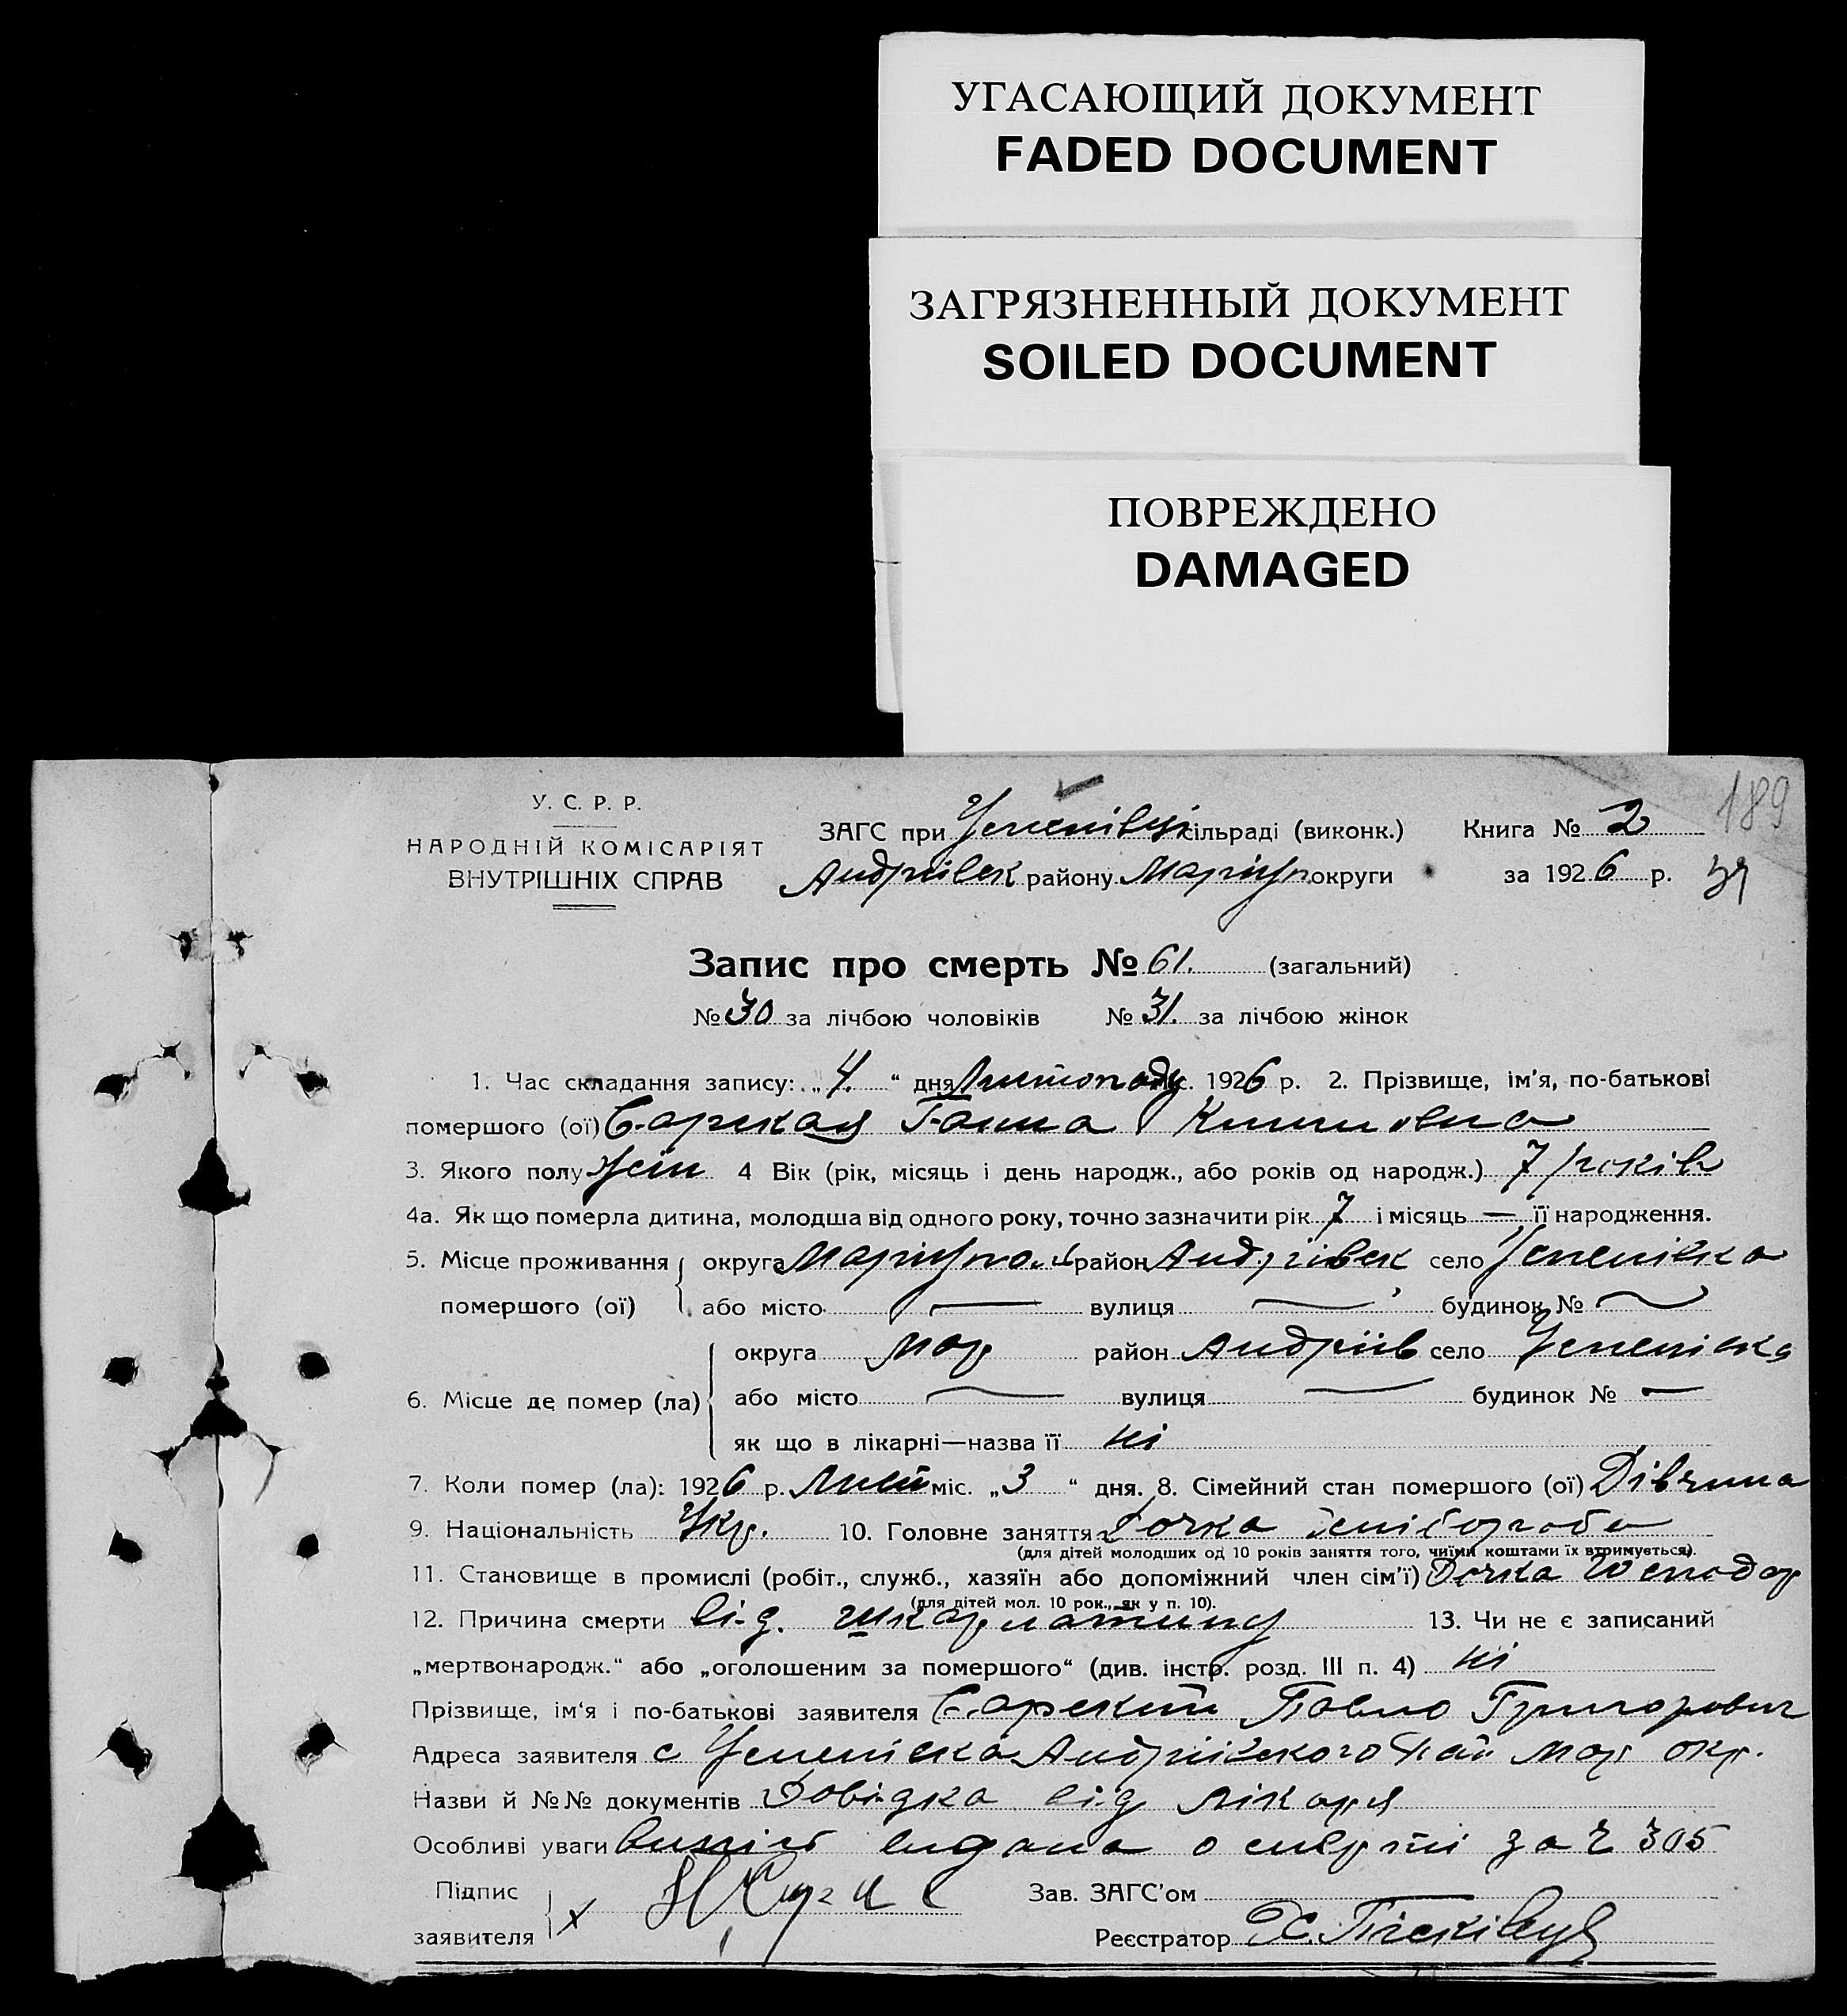 УГАСАЮЩИЙ ДОКУМЕНТ
FADED DOCUMENT
ЗАГРЯЗНЕННЫЙ ДОКУМЕНТ
SOILED DOCUMENT
ПОВРЕЖДЕНО
DAMAGED
189
У. С. Р. Р.
НАРОДНІЙ КОМІСАРІЯТ
ВНУТРІШНІХ СПРАВ
ЗАГС при Успенівці сільраді (виконк.) Книга № 2
Андріївск району Маріуп округи за 1926 р.
Запис про смерть № 61. (загальний)
№ 30 за лічбою чоловіків № 31. за лічбою жінок
1. Час складання запису: „4.“ дня Листопаду 1926 р. 2. Прізвище, ім'я, по-батькові
помершого (ої) Ганна
3. Якого полу Жін 4 Вік (рік, місяць і день народж., або років од народж.) 7 років
4а. Як що померла дитина, молодша від одного року, точно зазначити рік 7 і місяць — її народження.
5. Місце проживання округа Маріупол район Андріївск село Успенівка
помершого (ої) або місто — вулиця — будинок № —
округа Мар район Андріїв село Успенівка
6. Місце де помер (ла) або місто — вулиця — будинок № —
як що в лікарні—назва її ні
7. Коли помер (ла): 1926 р. Лист міс. „3“ дня. 8. Сімейний стан помершого (ої) Дівчина
9. Національність Укр. 10. Головне заняття Дочка хлібороба
(для дітей молодших од 10 років заняття того, чиїми коштами їх втримується).
11. Становище в промислі (робіт., служб., хазяїн або допоміжний член сім'ї) Дочка
(для дітей мол. 10 рок., як у п. 10).
12. Причина смерти від шкарлатину 13. Чи не є записаний
„мертвонародж.“ або „оголошеним за помершого“ (див. інстр. розд. III п. 4) ні
Прізвище, ім'я і по-батькові заявителя Павло Григорович
Адреса заявителя с Успенівка Андріївского рай Мар окр.
Назви й №№ документів Довідка від лікаря
Особливі уваги випись видана о смерті за 305
Підпис
заявителя
Зав. ЗАГС'ом
Реєстратор